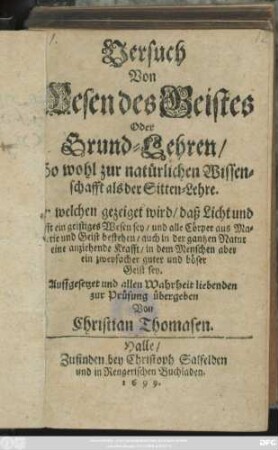 Versuch
Von
Wesen des Geistes
Oder
Grund-Lehren/
So wohl zur natürlichen Wissen-
schafft als der Sitten-Lehre.
welchen gezeiget wird/ daß Licht und
ein geistiges Wesen sey/ und alle Cörper aus Ma-
und Geist bestehen/ auch in der gantzen Natur
eine anziehende Krafft/ in dem Menschen aber
ein zweyfacher guter und böser
Geist sey.
Auffgesetzet und allen Wahrheit liebenden
zur Prüfung übergeben
Von
Christian Thomasen.
Halle/
Zufinden bey Christoph Salfelden
und in Rengerischen Buchladen.
1699.